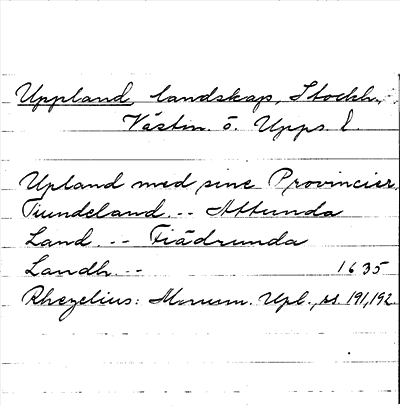 Uppland, landskap, Stockh.,
Västm. o. Upps. l.
Upland med sine Provincier,
Tiundeland. -- Attunda
Land. -- Fiädrunda
Landh. -- 1635
Rhezelius: Monum. Upl., ss. 191, 192.